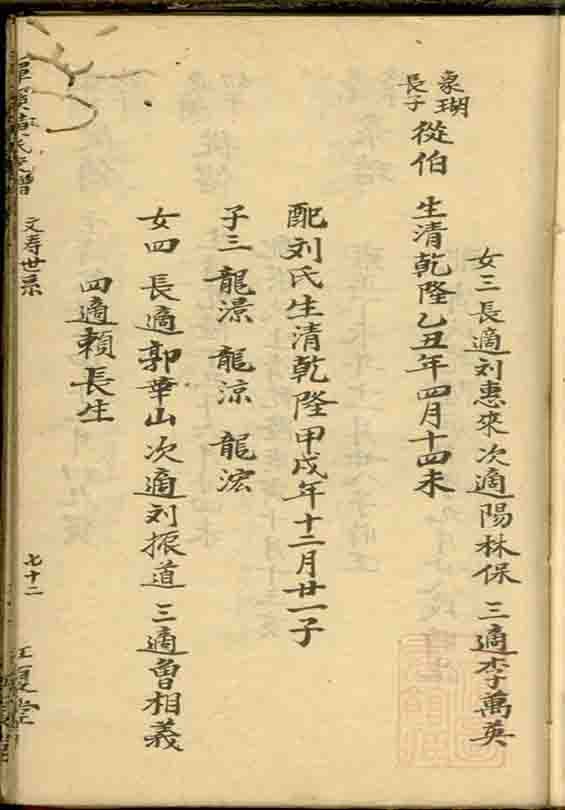 女三 長適刘惠來 次適陽林保 三適李萬英
豪瑚
長子
從伯 生清乾隆乙丑年四月十四未
配刘氏生清乾隆甲戌年十二月廿一子
子三 龍澋 龍涼 龍浤
女四 長適郭華山 次適刘振道 三適曾相義
四適賴長生
文寿世系
七十二
江夏堂